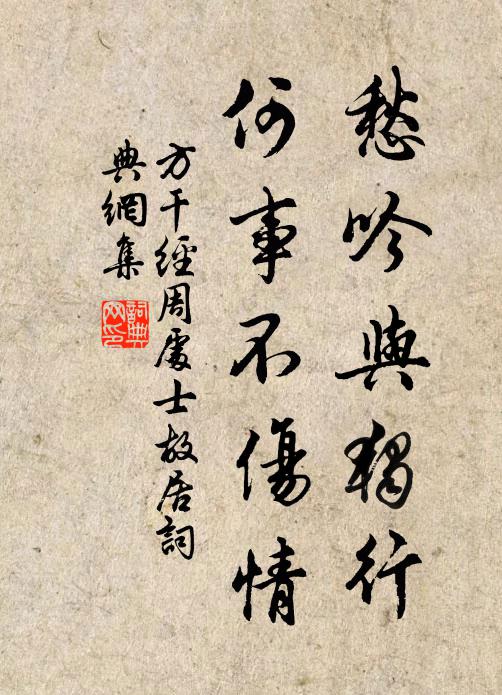 愁吟與獨行
何事不傷情
方干經周處士故居詞
典網集
詞典網印